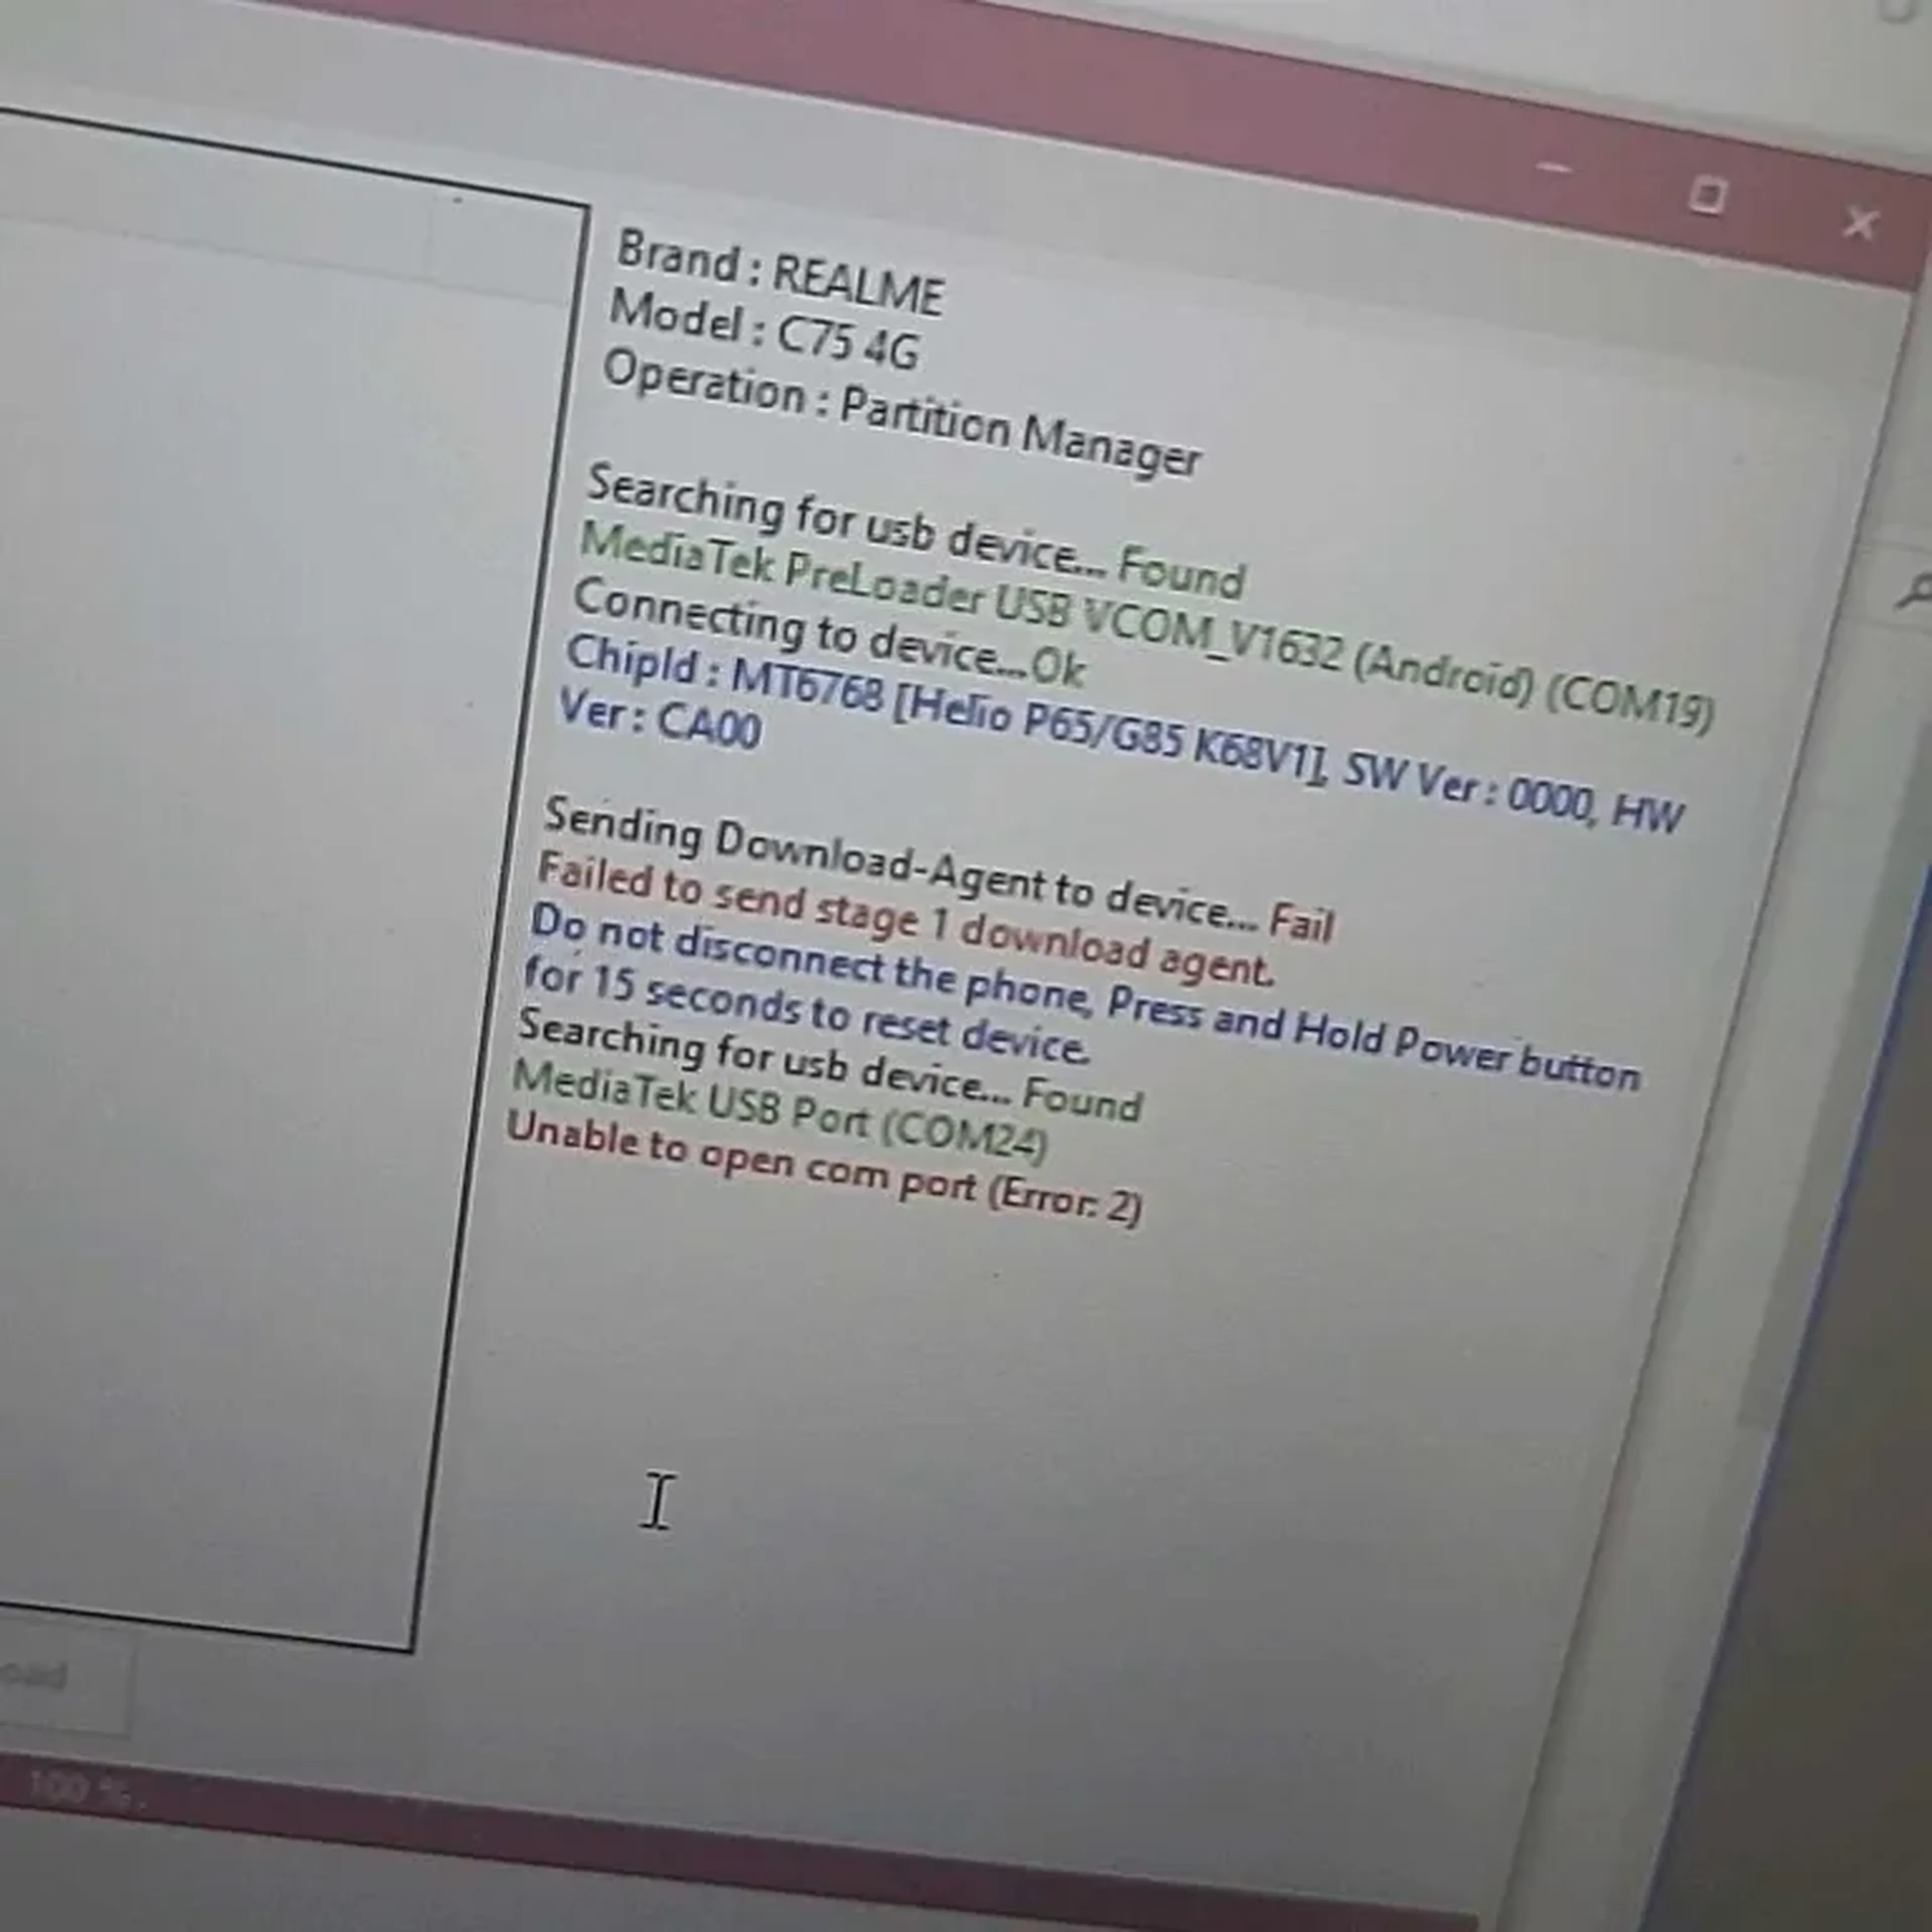 Brand : REALME
Model : C75 4G
Operation : Partition Manager
Searching for usb device... Found
MediaTek PreLoader USB VCOM_V1632 (Android) (COM19)
Connecting to device...Ok
ChipId : MT6768 [Helio P65/G85 K68V1], SW Ver : 0000, HW
Ver : CA00
Sending Download-Agent to device... Fail
Failed to send stage 1 download agent.
Do not disconnect the phone, Press and Hold Power button
for 15 seconds to reset device.
Searching for usb device... Found
MediaTek USB Port (COM24)
Unable to open com port (Error: 2)
100 %